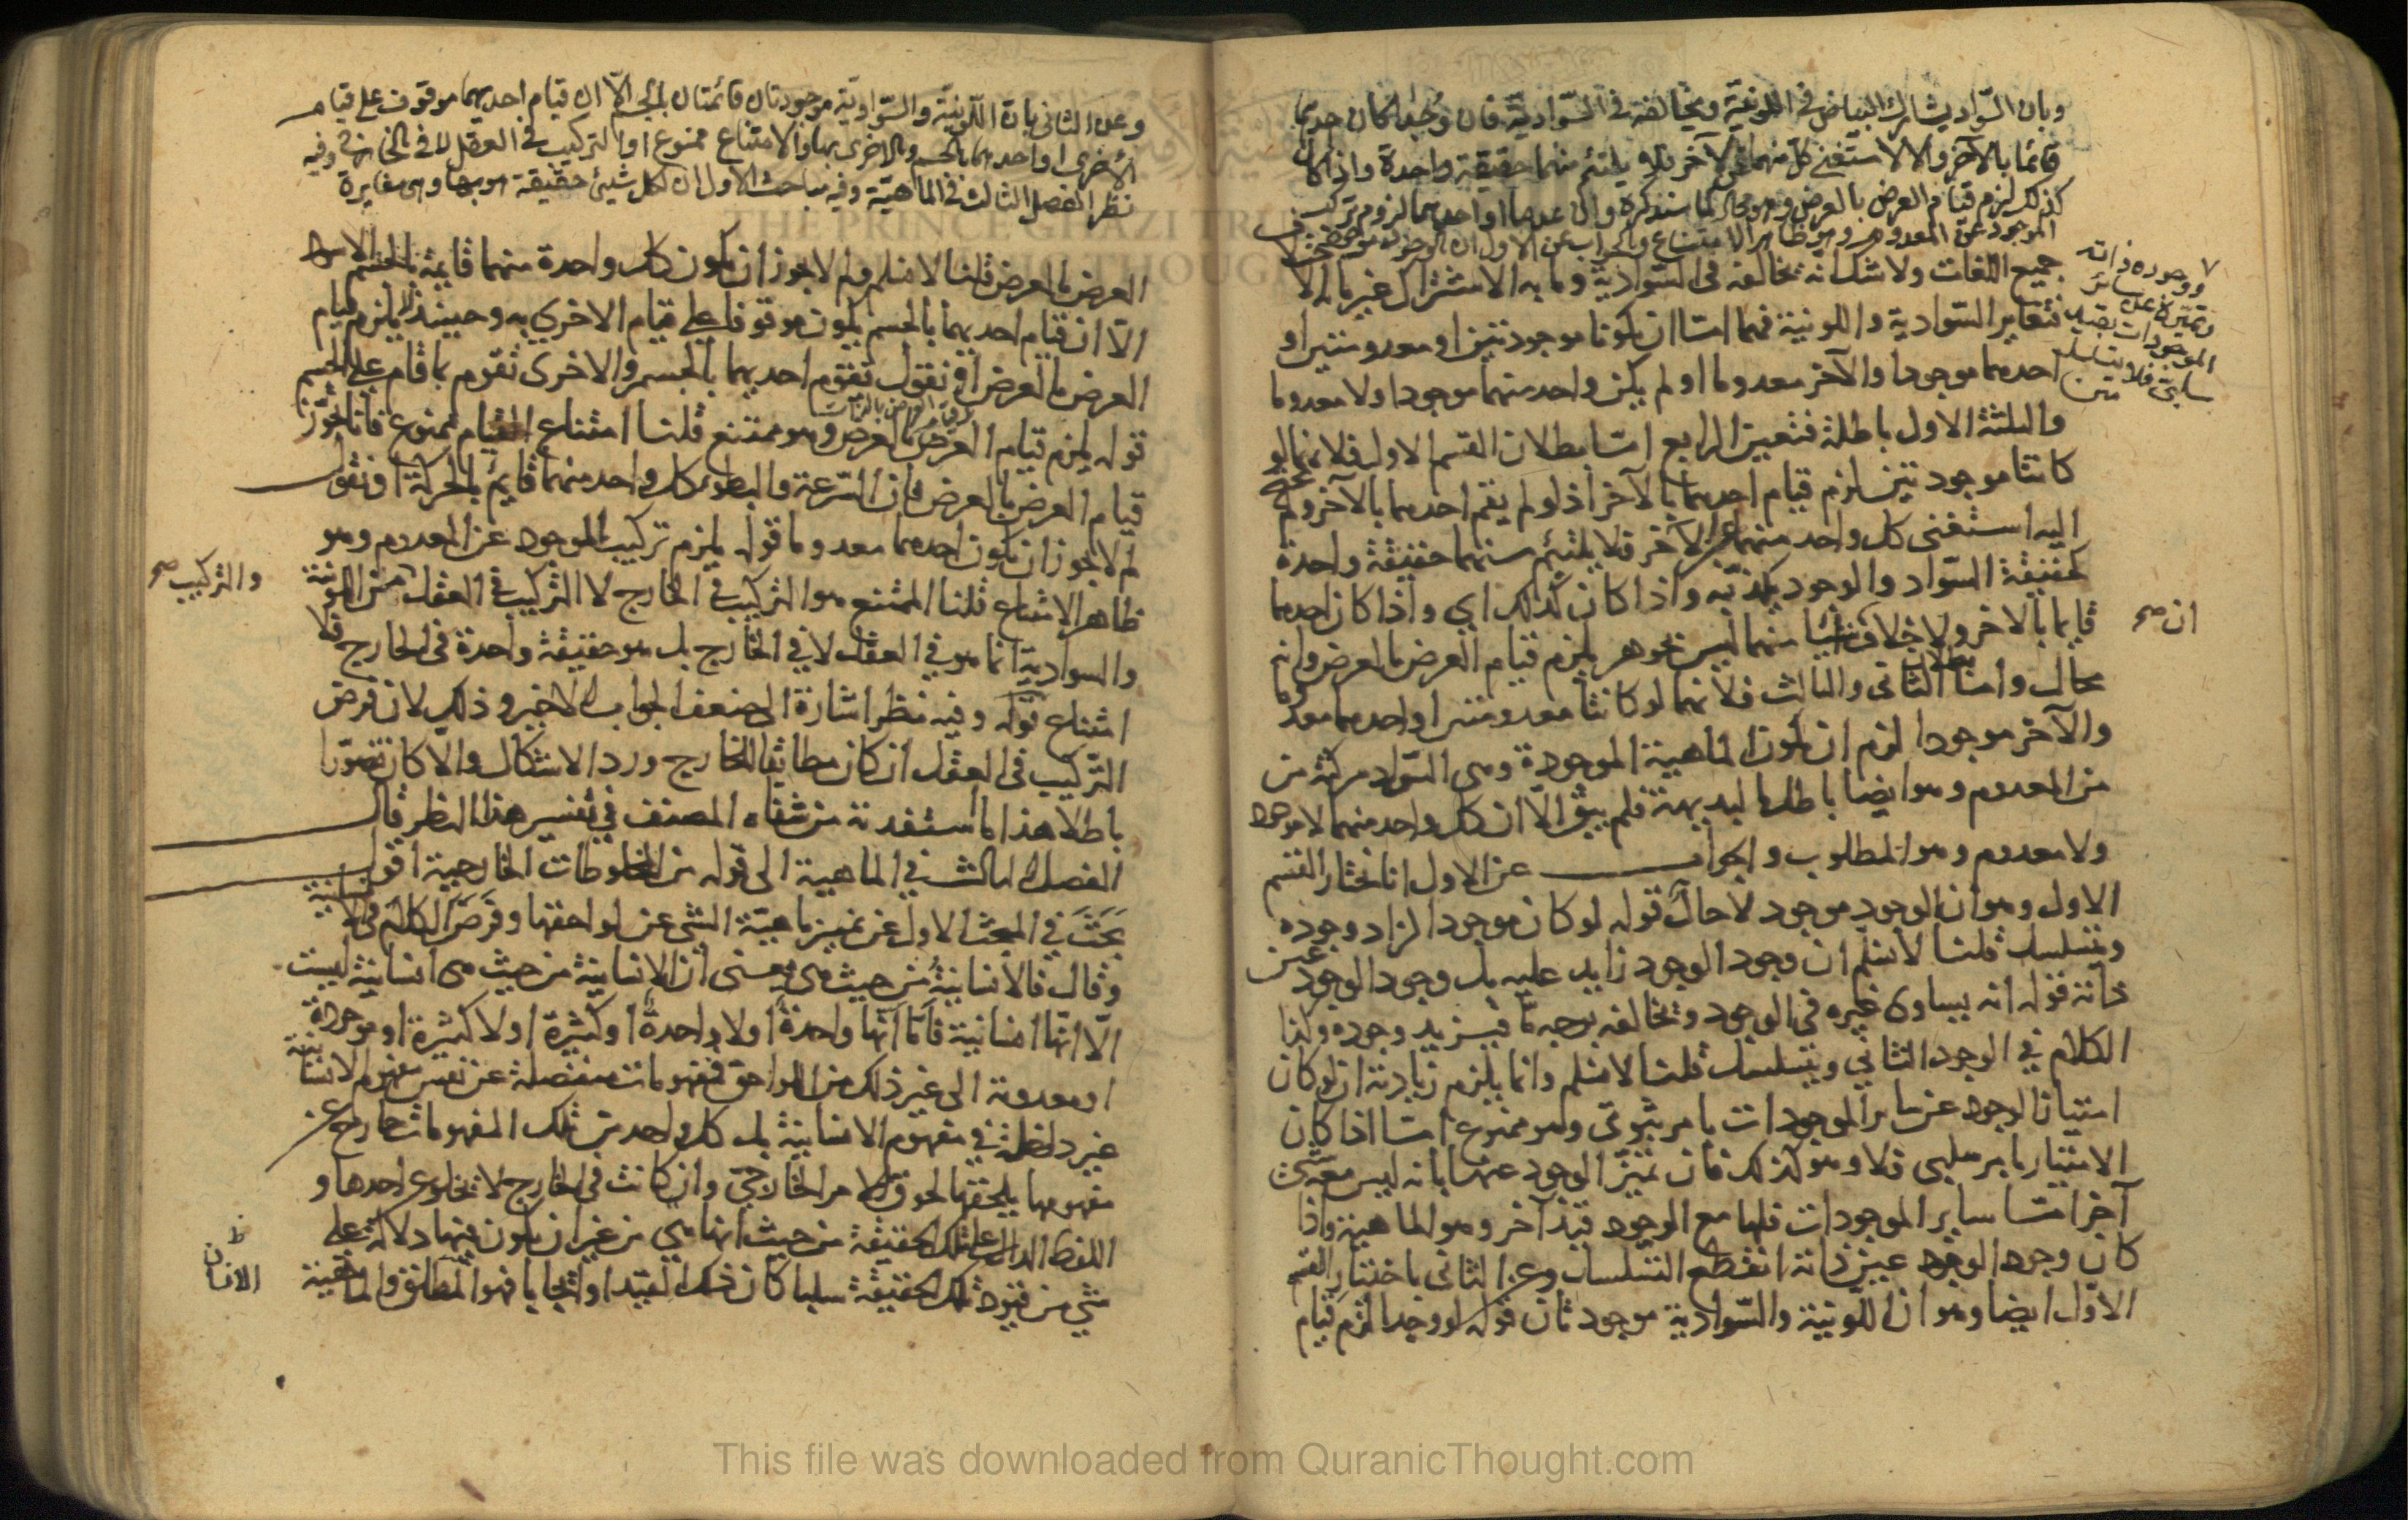 وبان السّواد يشارك البياض فى اللونيّة ويخالفه فى السّواديّة فان وُجدا كان احدهما
قائما بالآخر والا لاستغنى كلّ منهما عن الآخر فلا يلتئم منهما حقيقة واحدة واذا كان
كذلك لزم قيام العرض بالعرض وهو محال لما سنذكره وان عدما او احدهما لزم تركب
الموجود عن المعدوم وهو ظاهر الامتناع والجواب عن الاول ان الوجود موجود
ووجوده ذاته
وتميّزه عن سائر
الموجودات بقيد
سلبىّ فلا يتسلسل
متن
جميع اللغات ولا شك انه تخالفه فى السّوادية وما به الاشتراك غير ما به الا
فتغاير السّوادية واللونية فهما امّا ان يكونا موجودتين او معدومتين او
احدهما موجودا والآخر معدوما او لم يكن واحد منهما موجودا ولا معدوما
والثلثة الاول باطلة فتعين الرابع امّا بطلان القسم الاول فلانهما لو
كانتا موجودتين لزم قيام احدهما بالآخر اذ لو لم يقم احدهما بالآخر ولم يحتج
اليه استغنى كل واحد منهما عن الآخر فلا يلتئم منهما حقيقة واحدة
كحقيقة السّواد والوجود يكذبه واذا كان كذلك اي واذا كان احدهما
قايما بالاخر ولا خلاف ان شيئا منهما ليس بجوهر يلزم قيام العرض بالعرض وانه
ان صح
محال وامّا بطلان الثانى والثالث فلانهما لو كانتا معدومتين او احدهما معدوما
والآخر موجودا لزم ان يكون الماهية الموجودة وهى السّواد مركبة من
من المعدوم وهو ايضا باطل بالبديهة فلم يبق الّا ان كل واحد منهما لا موجود
ولا معدوم وهو المطلوب والجواب عن الاول انا نختار القسم
الاول وهو ان الوجود موجود لا حال قوله لو كان موجودا لزاد وجوده
ويتسلسل قلنا لا نسلّم ان وجود الوجود زايد عليه بل وجود الوجود عين
ذاته قوله انه يساوى غيره فى الوجود وتخالفه بوجه مّا فيزيد وجوده وكذا
الكلام في الوجود الثاني ويتسلسل قلنا لا نسلم وانما يلزم زيادته ان لو كان
امتياز الوجود عن ساير الموجودات بامر ثبوتى وهو ممنوع امّا اذا كان
الامتياز بامر سلبي فلا وهو كذلك فان تميّز الوجود عنها بانه ليس معه شئ
آخر امّا ساير الموجودات فلها مع الوجود قيد آخر وهو الماهية واذا
كان وجود الوجود عين ذاته انقطع التسلسل وعن الثانى باختيار القسم
الاوّل ايضا وهو ان اللّونية والسّوادية موجودتان قوله لو وجدا لزم قيام
وعن الثانى بانّ اللّونيّة والسّواديّة موجودتان قائمتان بالجسم الّا ان قيام احديهما موقوف على قيام
الاخرى او احديهما بالجسم والاخرى بها والامتناع ممنوع او التركيب فى العقل لا فى الخارج وفيه
نظر الفصل الثالث فى الماهيّة وفيه مباحث الاول ان لكل شيئ حقيقة هو بها وهى مغايرة
العرض بالعرض قلنا لا نسلم ولم لا يجوز ان يكون كل واحدة منهما قايمة بالجسم
الّا ان قيام احديهما بالجسم يكون موقوفا على قيام الاخرى به وحينئذ لا يلزم قيام
العرض بالعرض او نقول تقوّم احديهما بالجسم والاخرى تقوّم بما قام على الجسم
قوله يلزم قيام العرض بالعرض وهو ممتنع قلنا امتناع القيام ممنوع فانا نجوّز
قيام العرض بالعرض فان السّرعة والبطؤ كل واحد منهما قايم بالحركة او نقول
لم لا يجوز ان يكون احدهما معدوما قوله يلزم تركيب الموجود عن المعدوم وهو
ظاهر الامتناع قلنا الممتنع هو التركيب في الخارج لا التركيب في العقل من اللونية
والتركيب صح
والسوادية انما هو في العقل لا في الخارج بل هو حقيقة واحدة فى الخارج فلا
امتناع قوله وفيه نظر اشارة الى ضعف الجواب الاخير وذلك لان فرض
التّركيب فى العقل ان كان مطابقا للخارج ورد الاشكال والّا كان تصوّرا
باطلا هذا ما استفدته من شفاه المصنف في تفسير هذا النظر قال
الفصل الثالث في الماهية الى قوله من المخلوطات الخارجية اقول
بَحَثَ في المبحث الاول عن تميز ماهيّة الشى عن لواحقها وفرض الكلام فى الانسانية
وقال فالانسانيةُ من حيث هى يعنى ان الانسانية من حيث هى انسانية ليست
الّا انّها انسانية فامّا انّها واحدةٌ او لا واحدةٌ او كثيرة او لا كثيرة او موجودة
او معدومة الى غير ذلك من اللواحق فمفهومات منفصلة عن نفس مفهوم الانسانية
غير داخلة في مفهوم الانسانية بل كل واحد من تلك المفهومات خارج عن
مفهومها يلحقها لحوق الامر الخارجىّ وان كانت فى الخارج لا تخلو عن احدها و
اللفظ الدال على تلك الحقيقة من حيث انها هى من غير ان يكون فيها دلالة على
شي من قيود تلك الحقيقة سلبا كان ذلك القيد او ايجابا فهو المطلق والماهية
الانسان
THE PRINCE GHAZI TRU
THOUGH
This file was downloaded from QuranicThought.com